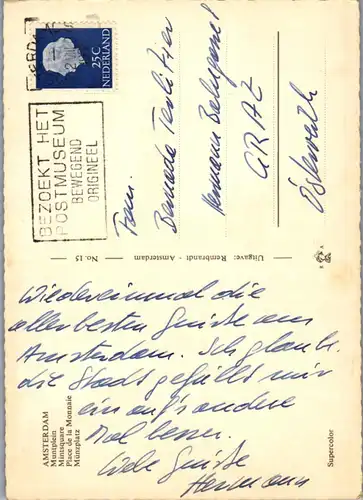 AMSTERDAM
Muntplein
Mintsquare
Place de la Monnaie
Münzplatz
Wiedereinmal die
allerbesten Grüsse aus
Amsterdam. Ich glaube,
die Stadt gefällt mir
ein ang's andere
Mal besser.
Liebe Grüsse
Hermann
Supercolor
No. 15
Uitgave: Rembrandt - Amsterdam
R A
BEZOEKT HET
POSTMUSEUM
BEWEGEND
ORIGINEEL
25C
NEDERLAND
Frau
Hermann
GRAZ
Österreich